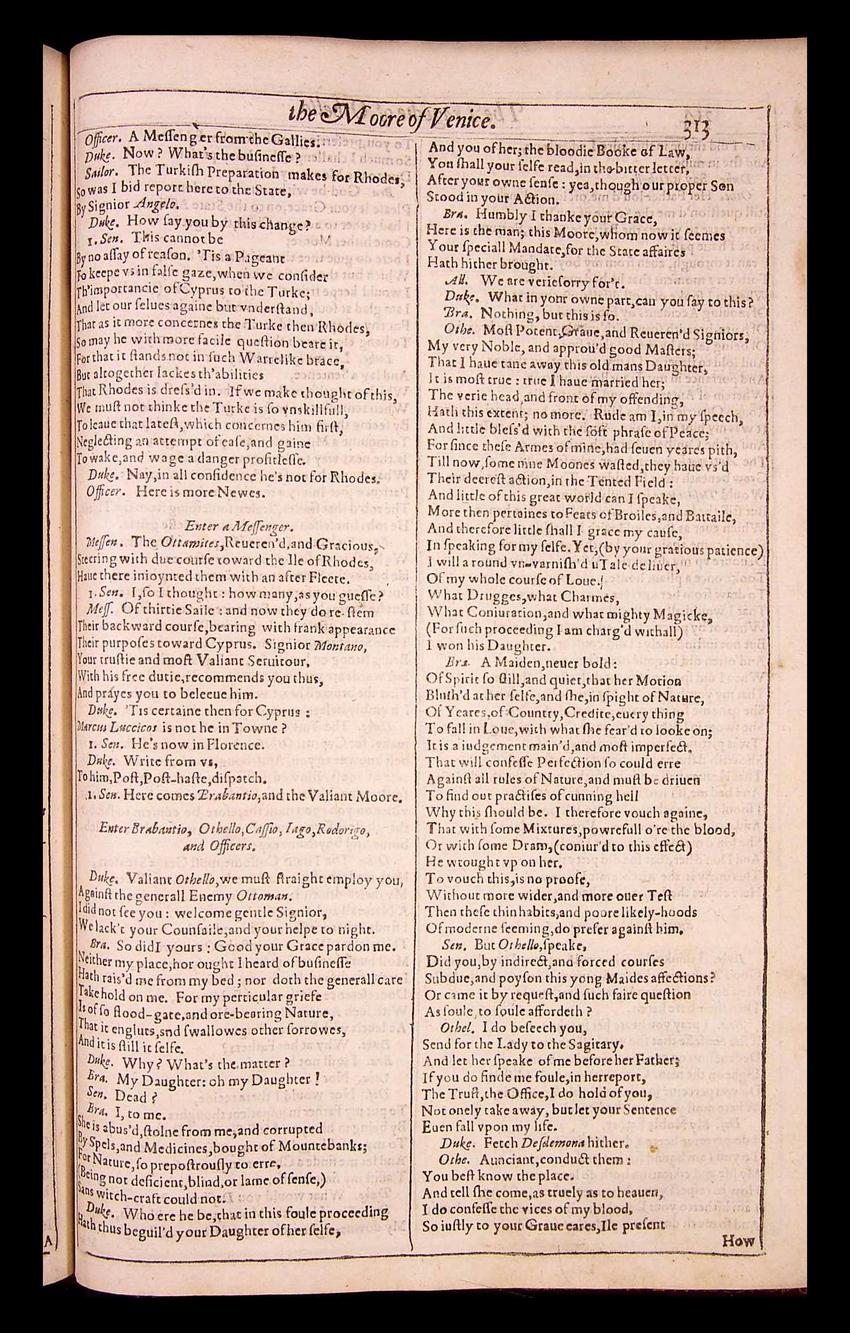 the Moore of Venice.
313
Officer. A Meſſenger from the Gallies.
Duke. Now? What's the buſineſſe?
Sailor. The Turkiſh Preparation makes for Rhodes,
So was I bid report here to the State,
By Signior Angelo.
Duke. How ſay you by this change?
1. Sen. This cannot be
By no aſſay of reaſon. 'Tis a Pageant
To keepe vs in falſe gaze, when we conſider
Th'importancie of Cyprus to the Turke;
And let our ſelues againe but vnderſtand,
That as it more concernes the Turke then Rhodes,
So may he with more facile queſtion beare it,
For that it ſtands not in ſuch Warrelike brace,
But altogether lackes th'abilities
That Rhodes is dreſs'd in. If we make thought of this,
We muſt not thinke the Turke is ſo vnskillfull,
To leaue that lateſt, which concernes him firſt,
Neglecting an attempt of eaſe, and gaine
To wake, and wage a danger profitleſſe.
Duke. Nay, in all confidence he's not for Rhodes.
Officer. Here is more Newes.
Enter a Meſſenger.
Meſſen. The Ottamites, Reueren'd, and Gracious,
Steering with due courſe toward the Ile of Rhodes,
Haue there inioynted them with an after Fleete.
1. Sen. I, ſo I thought: how many, as you gueſſe?
Meſſ. Of thirtie Saile: and now they do re-ſtem
Their backward courſe, bearing with frank appearance
Their purpoſes toward Cyprus. Signior Montano,
Your truſtie and moſt Valiant Seruitour,
With his free dutie, recommends you thus,
And prayes you to beleeue him.
Duke. 'Tis certaine then for Cyprus:
Marcus Luccicos is not he in Towne?
1. Sen. He's now in Florence.
Duke. Write from vs,
To him, Poſt, Poſt-haſte, diſpatch.
1. Sen. Here comes Brabantio, and the Valiant Moore.
Enter Brabantio, Othello, Caſſio, Iago, Rodorigo,
and Officers.
Duke. Valiant Othello, we muſt ſtraight employ you,
Againſt the generall Enemy Ottoman.
I did not ſee you: welcome gentle Signior,
We lack't your Counſaile, and your helpe to night.
Bra. So did I yours: Good your Grace pardon me.
Neither my place, hor ought I heard of buſineſſe
Hath rais'd me from my bed; nor doth the generall care
Take hold on me. For my perticular griefe
Is of ſo flood-gate, and ore-bearing Nature,
That it engluts, snd ſwallowes other ſorrowes,
And it is ſtill it ſelfe.
Duke. Why? What's the matter?
Bra. My Daughter: oh my Daughter!
Sen. Dead?
Bra. I, to me.
She is abus'd, ſtolne from me, and corrupted
By Spels, and Medicines, bought of Mountebanks;
For Nature, ſo prepoſtrouſly to erre,
(Being not deficient, blind, or lame of ſenſe,)
Sans witch-craft could not.
Duke. Who ere he be, that in this foule proceeding
Hath thus beguil'd your Daughter of her ſelfe,
And you of her; the bloodie Booke of Law,
You ſhall your ſelfe read, in the bitter letter,
After your owne ſenſe: yea, though our proper Son
Stood in your Action.
Bra. Humbly I thanke your Grace,
Here is the man; this Moore, whom now it ſeemes
Your ſpeciall Mandate, for the State affaires
Hath hither brought.
All. We are verie ſorry for't.
Duke. What in yonr owne part, can you ſay to this?
Bra. Nothing, but this is ſo.
Othe. Moſt Potent, Graue, and Reueren'd Signiors,
My very Noble, and approu'd good Maſters;
That I haue tane away this old mans Daughter,
It is moſt true: true I haue married her;
The verie head, and front of my offending,
Hath this extent; no more. Rude am I, in my ſpeech,
And little bleſs'd with the ſoft phraſe of Peace;
For ſince theſe Armes of mine, had ſeuen yeares pith,
Till now, ſome nine Moones waſted, they haue vs'd
Their deereſt action, in the Tented Field:
And little of this great world can I ſpeake,
More then pertaines to Feats of Broiles, and Battaile,
And therefore little ſhall I grace my cauſe,
In ſpeaking for my ſelfe. Yet, (by your gratious patience)
I will a round vn-varniſh'd u Tale deliuer,
Of my whole courſe of Loue.
What Drugges, what Charmes,
What Coniuration, and what mighty Magicke,
(For ſuch proceeding I am charg'd withall)
I won his Daughter.
Bra. A Maiden, neuer bold:
Of Spirit ſo ſtill, and quiet, that her Motion
Bluſh'd at her ſelfe, and ſhe, in ſpight of Nature,
Of Yeares, of Country, Credite, euery thing
To fall in Loue, with what ſhe fear'd to looke on;
It is a iudgement main'd, and moſt imperfect.
That will confeſſe Perfection ſo could erre
Againſt all rules of Nature, and muſt be driuen
To find out practiſes of cunning hell
Why this ſhould be. I therefore vouch againe,
That with ſome Mixtures, powrefull o're the blood,
Or with ſome Dram, (coniur'd to this effect)
He wtought vp on her.
To vouch this, is no proofe,
Without more wider, and more ouer Teſt
Then theſe thin habits, and poore likely-hoods
Of moderne ſeeming, do prefer againſt him.
Sen. But Othello, ſpeake,
Did you, by indirect, and forced courſes
Subdue, and poyſon this yong Maides affections?
Or came it by requeſt, and ſuch faire queſtion
As ſoule, to ſoule affordeth?
Othel. I do beſeech you,
Send for the Lady to the Sagitary,
And let her ſpeake of me before her Father;
If you do finde me foule, in her report,
The Truſt, the Office, I do hold of you,
Not onely take away, but let your Sentence
Euen fall vpon my life.
Duke. Fetch Deſdemona hither.
Othe. Aunciant, conduct them:
You beſt know the place.
And tell ſhe come, as truely as to heauen,
I do confeſſe the vices of my blood,
So iuſtly to your Graue eares, Ile preſent
How
A